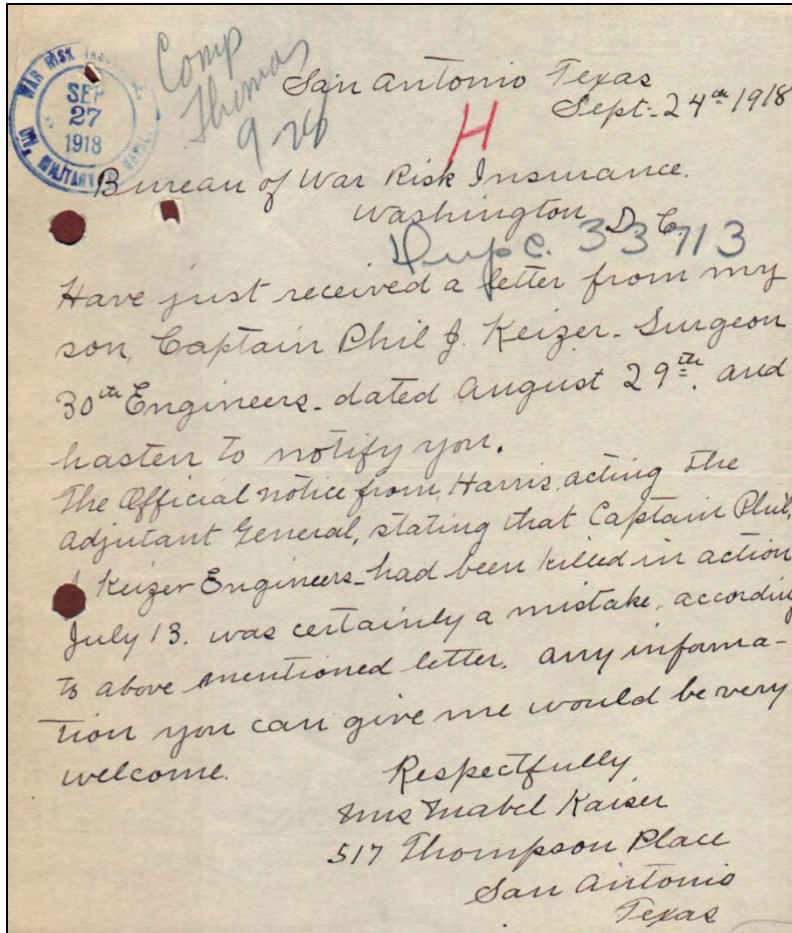 WAR RISK
SEP
27
1918
MILITARY
Comp
Thomas
San Antonio Texas
Sept. 24th 1918
H
Bureau of War Risk Insurance.
Washington D.C.
Dup C. 33713
Have just received a letter from my
son, Captain Phil J. Keizer - Surgeon
30th Engineers - dated August 29th. and
hasten to notify you.
The Official notice from, Harris, acting The
adjutant General, stating that Captain Phil,
Keizer Engineers - had been killed in action
July 13. was certainly a mistake, according
to above mentioned letter. any informa-
tion you can give me would be very
welcome.
Respectfully
Mrs Mabel Kaiser
517 Thompson Place
San Antonio
Texas